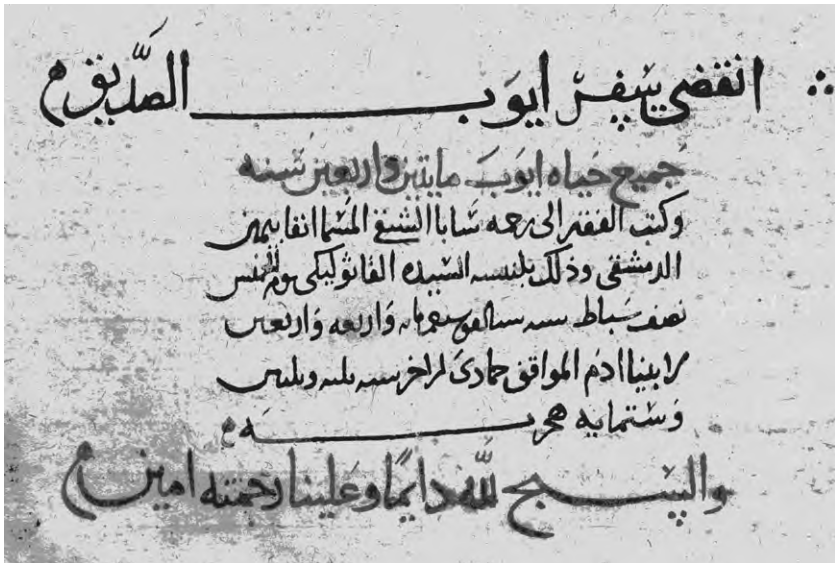 انقضى سفر ايوب الصديق م
جميع حياه ايوب مايتين واربعين سنه
وكتب الفقير الى رحمه سابا الشقي المسما انفا بيمين
الدمشقي وذلك بكنيسه السيده القاثوليكى يوم الخميس
نصف سباط سنه سته الف سبعمايه واربعه واربعين
لابينا ادم الموافق جمادى الاخر سنه ثلثه وثلثين
وستمايه هجريه م
والسبح لله دايما وعلينا رحمته امين م